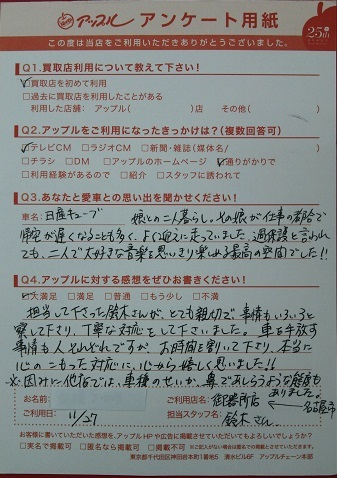 アップル アンケート用紙 25th
この度は当店をご利用いただきありがとうございました。
Q1.買取店利用について教えて下さい!
☑買取店を初めて利用
□過去に買取店を利用したことがある
利用した店舗: アップル( )店 その他( )
Q2.アップルをご利用になったきっかけは?(複数回答可)
☑テレビCM □ラジオCM □新聞・雑誌(媒体名/ )
□チラシ □DM □アップルのホームページ ☑通りがかりで
□利用経験があるので □紹介 □スタッフに誘われて
Q3.あなたと愛車との思い出を聞かせください!
車名:日産キューブ 娘との二人暮らし。その娘が仕事の都合で
帰宅が遅くなることも多く、よく迎えに走っていました。過保護と言われ
ても、二人で大好きな音楽を思いきり楽しめる最高の空間でした!!
Q4.アップルに対する感想をぜひお書きください!
☑大満足 □満足 □普通 □もう少し □不満
担当して下さった鈴木さんが、とても親切で事情もいろいろと
察して下さり、丁寧な対応をして下さいました。車を手放す
事情も人それぞれですが、お時間を割いて下り、本当に
心のこもった対応に、心から嬉しく思いました!!
※因みに他店では、車種のせいか、鼻であしらうような態度も
ありました。
お名前
ご利用店名:御器所店 名古屋市
ご利用日 11/27
担当スタッフ名 鈴木さん
お客様に書いていただいた感想を、アップルHPや広告に掲載させていただいてもよろしいでしょうか?
□実名で掲載可 □匿名なら掲載可 □掲載不可
東京都千代田区神田鍛冶町 清水ビル6F アップルチェーン本部